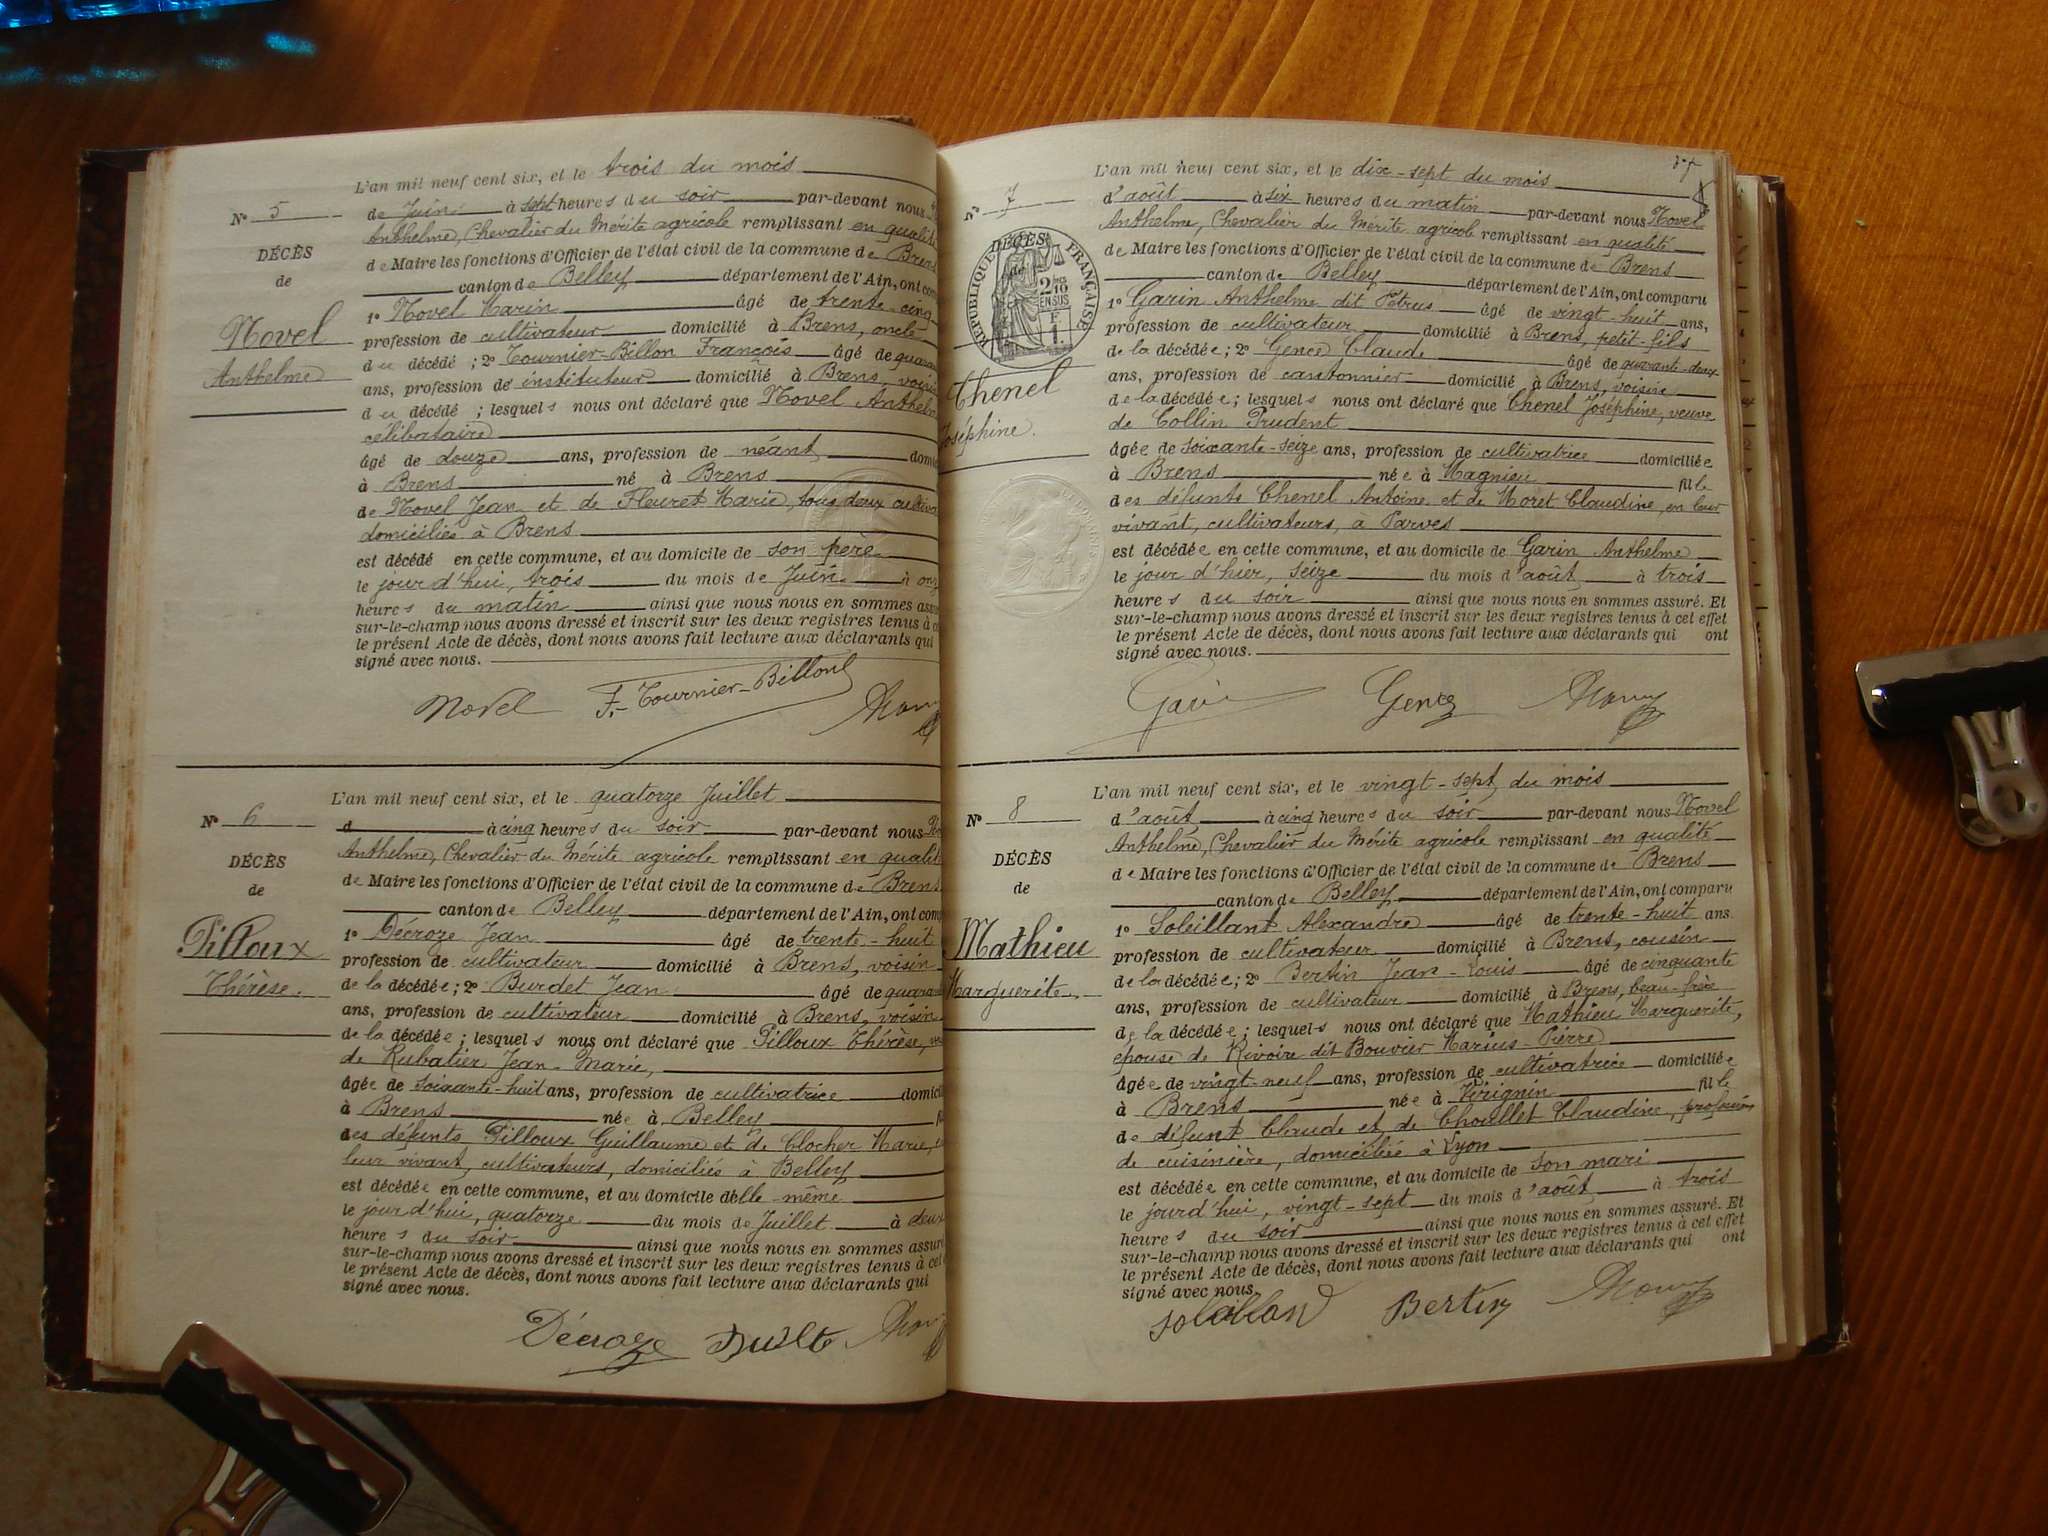 L'an mil neuf cent six, et le trois du mois
N° 5 de Juin à sept heures du soir par-devant nous
Anthelme, Chevalier du Mérite agricole remplissant en qualité
DÉCÈS de Maire les fonctions d'Officier de l'état civil de la commune de Brens
de canton de Belley département de l'Ain, ont
1° Novel Marin âgé de trente-cinq
Novel profession de cultivateur domicilié à Brens, oncle
du décédé; 2° Tournier-Billon François âgé de
Anthelme ans, profession de instituteur domicilié à Brens, voisin
du décédé; lesquels nous ont déclaré que Novel Anthelme
célibataire
âgé de douze ans, profession de néant
à Brens né à Brens
de Novel Jean et de Fleuret Marie, tous deux
domiciliés à Brens
est décédé en cette commune, et au domicile de son père
le jour d'hui, trois du mois de Juin à
heures du matin ainsi que nous nous en sommes
sur-le-champ nous avons dressé et inscrit sur les deux registres tenus à
le présent Acte de décès, dont nous avons fait lecture aux déclarants qui
signé avec nous.
Novel F. Tournier-Billon
L'an mil neuf cent six, et le quatorze Juillet
N° 6 d à cinq heures du soir par-devant nous
Anthelme, Chevalier du Mérite agricole remplissant en qualité
DÉCÈS de Maire les fonctions d'Officier de l'état civil de la commune de Brens
de canton de Belley département de l'Ain, ont
1° Décroze Jean âgé de trente-huit
Pilloux profession de cultivateur domicilié à Brens, voisin
Thérèse. de la décédée; 2° Burdet Jean âgé de
ans, profession de cultivateur domicilié à Brens, voisin
de la décédée; lesquels nous ont déclaré que Pilloux Thérèse,
de Rubatier Jean-Marie,
âgée de soixante-huit ans, profession de cultivatrice
à Brens née à Belley
des défunts Pilloux Guillaume et de Clocher Marie,
leur vivant, cultivateurs, domiciliés à Belley
est décédée en cette commune, et au domicile d'elle-même
le jour d'hui, quatorze du mois de Juillet à deux
heures du soir ainsi que nous nous en sommes assuré
sur-le-champ nous avons dressé et inscrit sur les deux registres tenus à cet
le présent Acte de décès, dont nous avons fait lecture aux déclarants qui
signé avec nous.
Décroze
L'an mil neuf cent six, et le dix-sept du mois
N° 7 d'août à six heures du matin par-devant nous Novel
Anthelme, Chevalier du Mérite agricole remplissant en qualité
de Maire les fonctions d'Officier de l'état civil de la commune de Brens
canton de Belley département de l'Ain, ont comparu
DÉCÈS
de
RÉPUBLIQUE FRANÇAISE
1° Garin Anthelme dit Pétrus âgé de vingt-huit ans,
profession de cultivateur domicilié à Brens, petit-fils
de la décédée; 2° Gence Claude âgé de quarante-deux
Chenel ans, profession de cantonnier domicilié à Brens, voisin
de la décédée; lesquels nous ont déclaré que Chenel Joséphine, veuve
Joséphine. de Collin Prudent
âgée de soixante-seize ans, profession de cultivatrice domiciliée
à Brens née à Magnieu fille
des défunts Chenel Antoine et de Moret Claudine, en leur
vivant, cultivateurs, à Parves
est décédée en cette commune, et au domicile de Garin Anthelme
le jour d'hier, seize du mois d'août à trois
heures du soir ainsi que nous nous en sommes assuré. Et
sur-le-champ nous avons dressé et inscrit sur les deux registres tenus à cet effet
le présent Acte de décès, dont nous avons fait lecture aux déclarants qui ont
signé avec nous.
L'an mil neuf cent six, et le vingt-sept du mois
N° 8 d'août à cinq heures du soir par-devant nous Novel
Anthelme, Chevalier du Mérite agricole remplissant en qualité
DÉCÈS de Maire les fonctions d'Officier de l'état civil de la commune de Brens
de canton de Belley département de l'Ain, ont comparu
1° Soleillant Alexandre âgé de trente-huit ans
Mathieu profession de cultivateur domicilié à Brens, cousin
de la décédée; 2° Bertin Jean-Louis âgé de cinquante
Marguerite. ans, profession de cultivateur domicilié à Brens, beau-frère
de la décédée; lesquels nous ont déclaré que Mathieu Marguerite,
épouse de Rivoire dit Bouvier Marius-Pierre
âgée de vingt-neuf ans, profession de cultivatrice domiciliée
à Brens née à Virignin fille
de défunt Claude et de Choullet Claudine, profession
de cuisinière, domiciliée à Lyon
est décédée en cette commune, et au domicile de son mari
le jourd'hui, vingt-sept du mois d'août à trois
heures du soir ainsi que nous nous en sommes assuré. Et
sur-le-champ nous avons dressé et inscrit sur les deux registres tenus à cet effet
le présent Acte de décès, dont nous avons fait lecture aux déclarants qui ont
signé avec nous.
Bertin